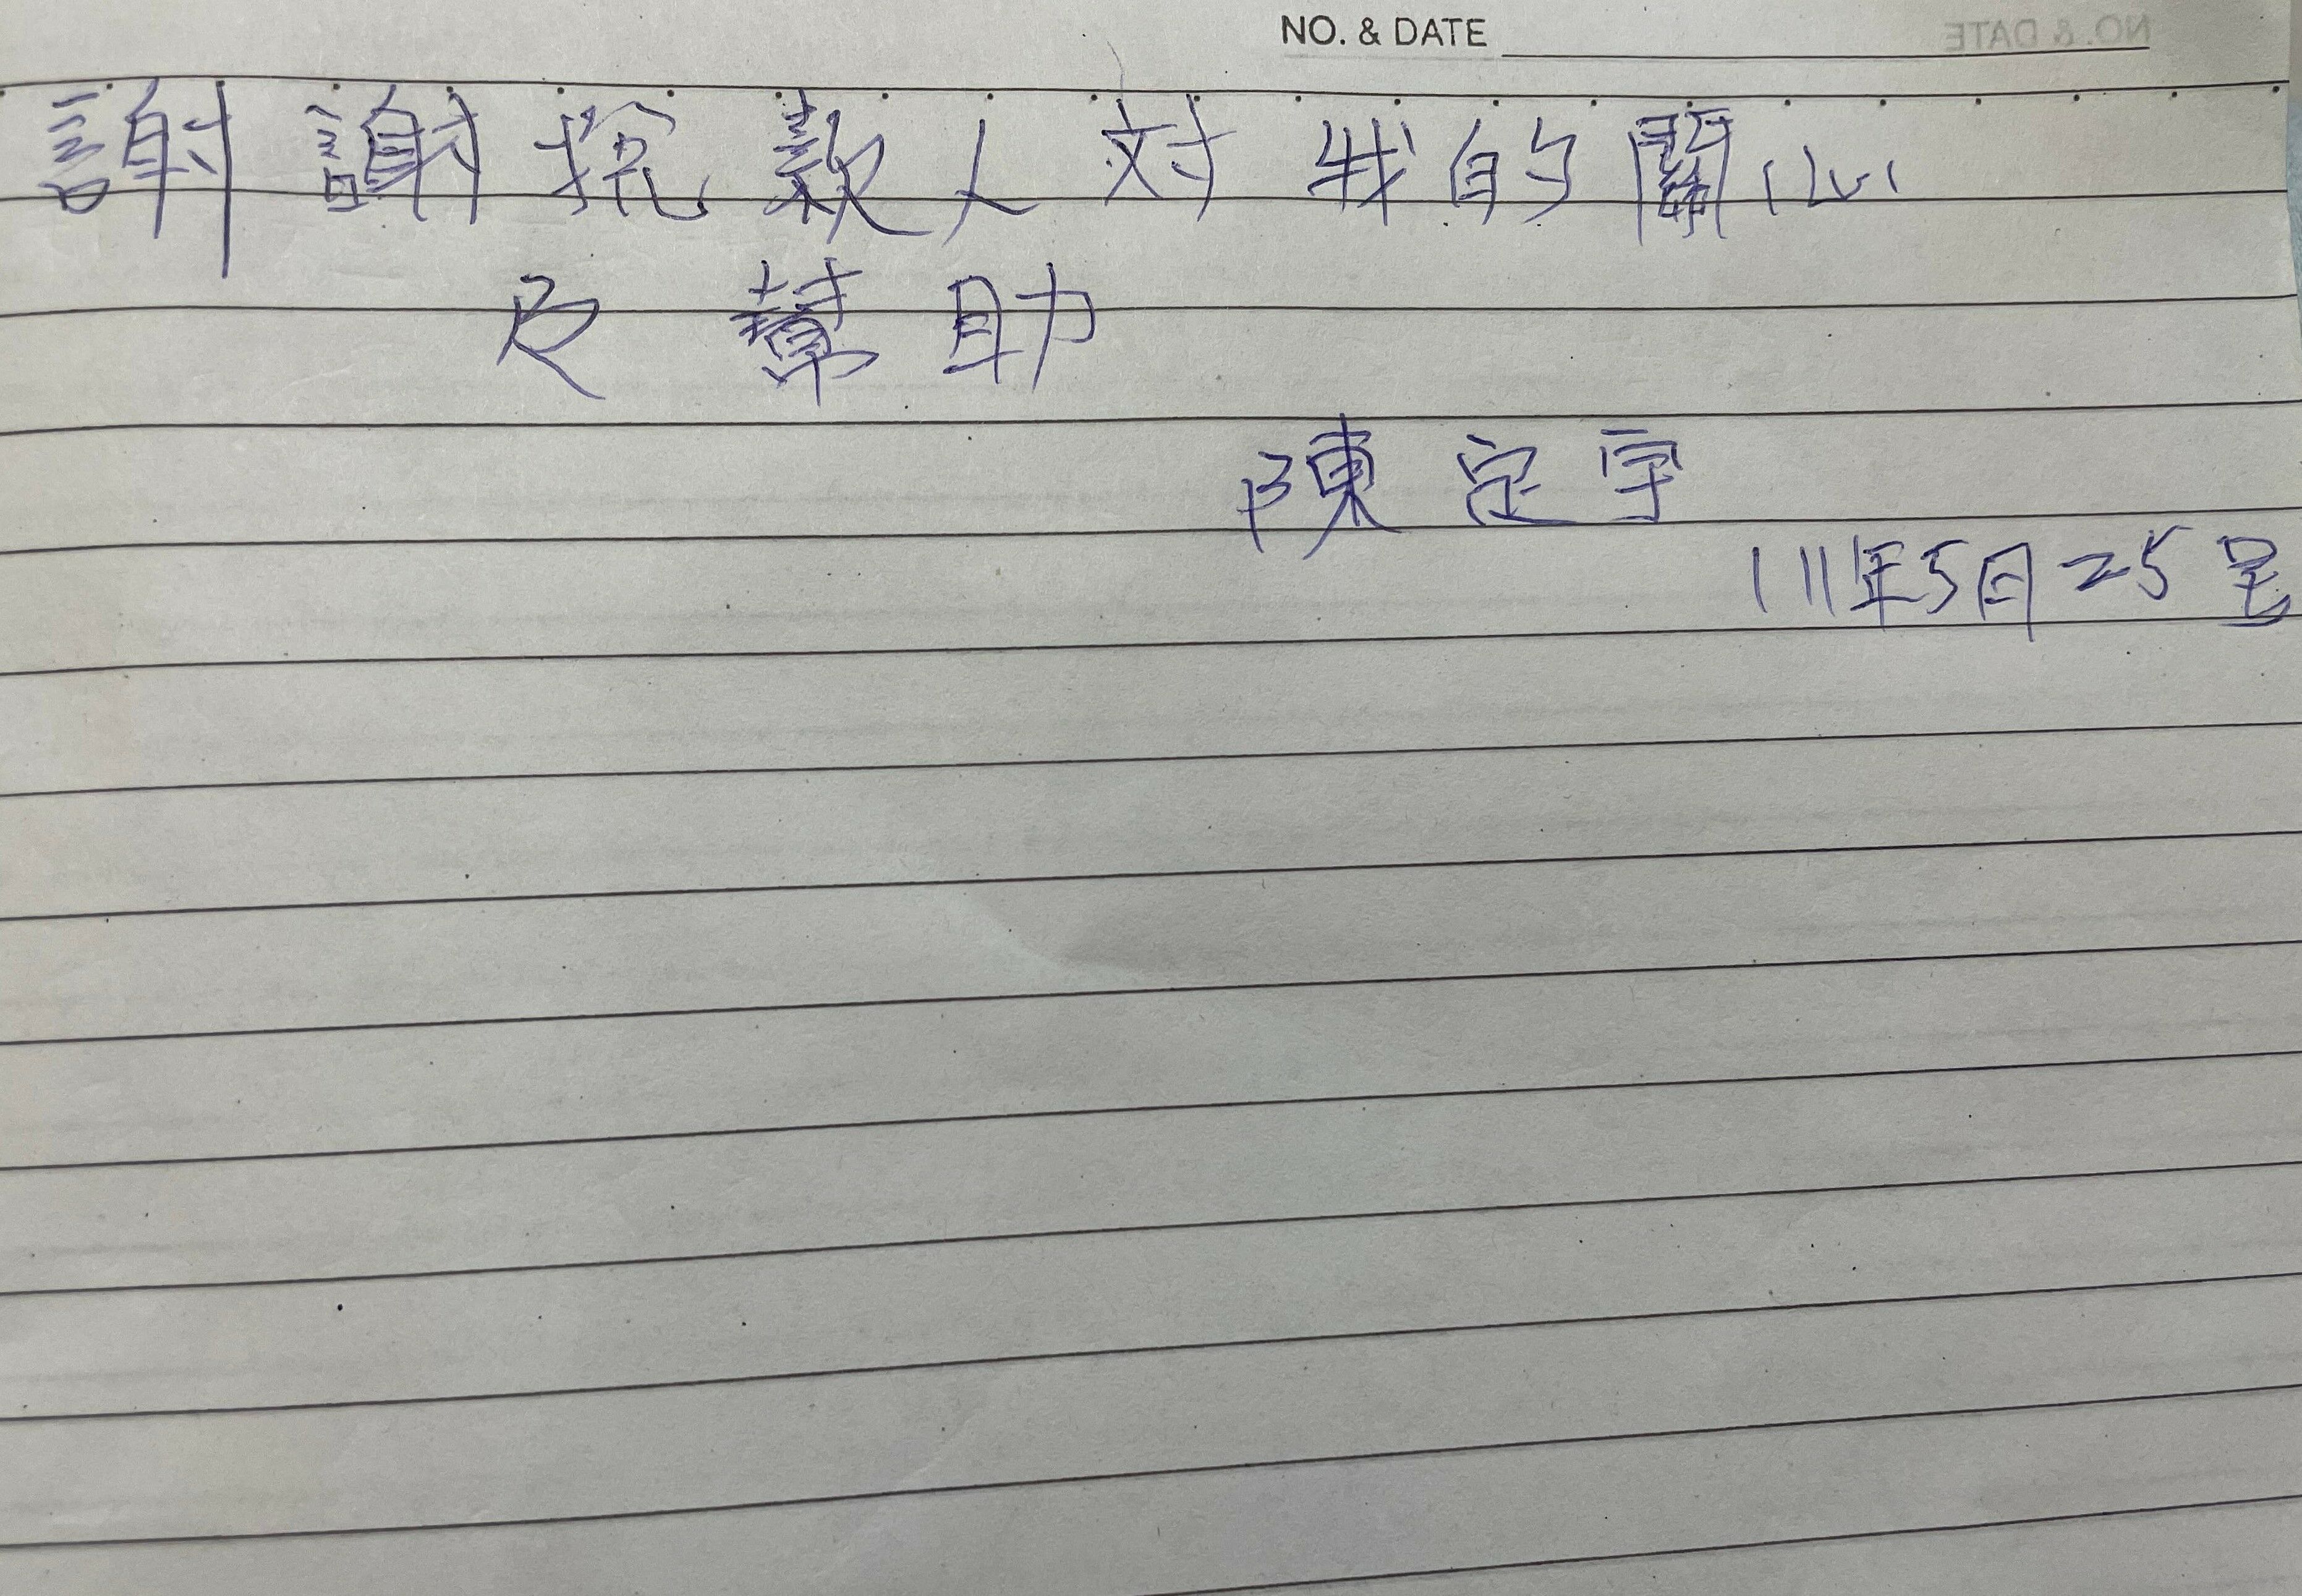 NO. & DATE
謝謝捐款人对我的關心
及幫助
陳定宇
111年5月25